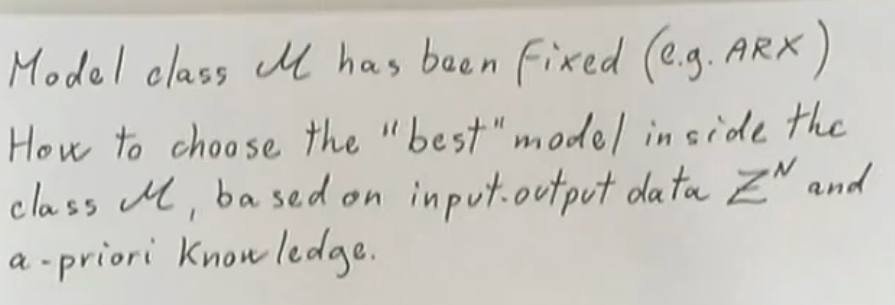 Model class M has been fixed (e.g. ARX)
How to choose the "best" model inside the
class M, based on input-output data Z^N and
a-priori knowledge.